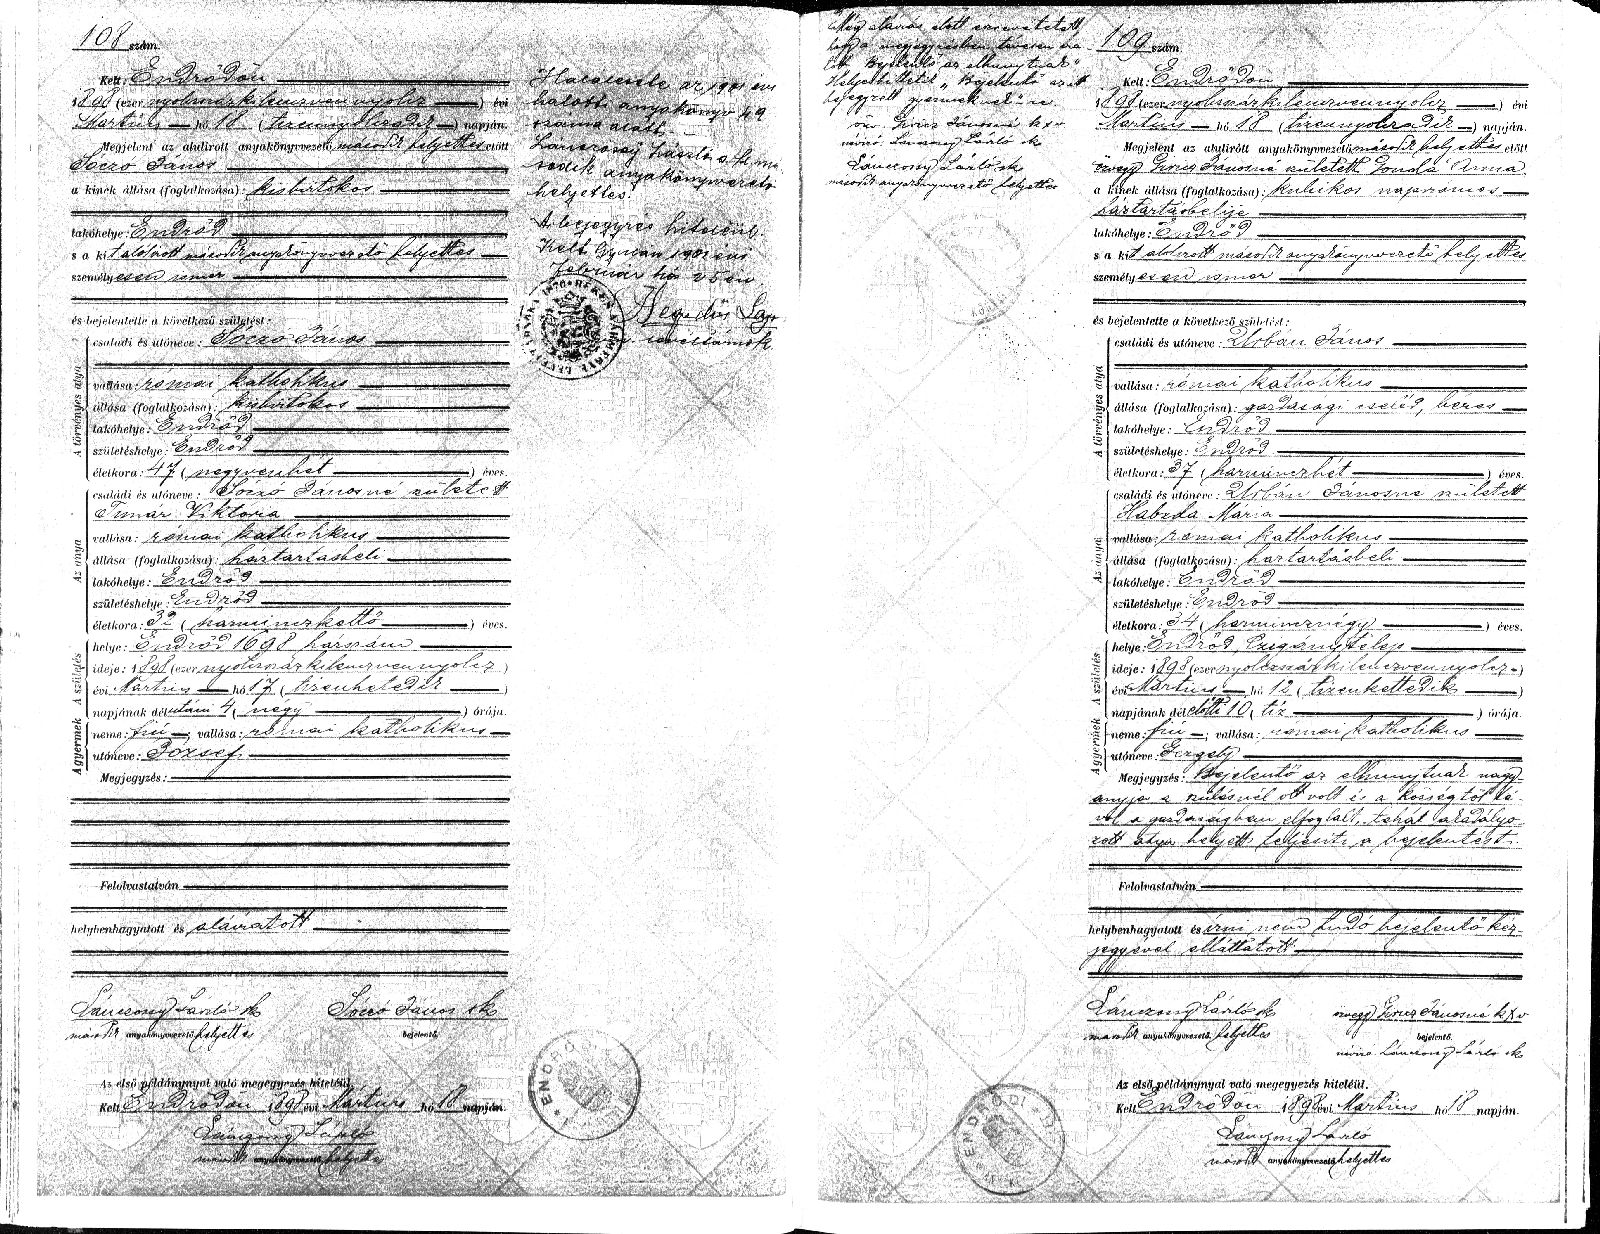 108 szám.
Kelt Endrődön
1898 (ezer nyolcszázkilenczvennyolcz) évi
Martius hó 18 (tizennyolczadik) napján.
Megjelent az alulirott anyakönyvvezető második helyettes előtt
Sóczó János
a kinek állása (foglalkozása): kisbirtokos
lakóhelye: Endrőd
s a kit alólirott második anyakönyvvezető helyettes
személyesen ismer
és bejelentette a következő születést:
A törvényes atya
családi és utóneve: Sóczó János
vallása: római katholikus
állása (foglalkozása): kisbirtokos
lakóhelye: Endrőd
születéshelye: Endrőd
életkora: 47 (negyvenhét) éves.
Az anya
családi és utóneve: Sóczó Jánosné született
Timár Viktoria
vallása: római katholikus
állása (foglalkozása): háztartásbeli
lakóhelye: Endrőd
születéshelye: Endrőd
életkora: 32 (harminczkettő) éves.
A születés
helye: Endrőd 1698 házszám
ideje: 1898 (ezer nyolcszázkilenczvennyolcz)
évi Martius hó 17 (tizenhetedik)
napjának délutáni 4 (négy) órája.
A gyermek
neme: fiú; vallása: római katholikus
utóneve: József
Megjegyzés:
Felolvastatván
helybenhagyatott és aláiratott
Lánczony László sk
második anyakönyvvezető helyettes
Sóczó János sk
bejelentő.
Az első példánynyal való megegyezés hiteléül.
Kelt Endrődön 1898 évi Martius hó 18 napján.
Lánczony László
második anyakönyvvezető helyettes
Halálesete az 1901 évi
halotti anyakönyv 49
száma alatt.
Lánczony László s. k. má-
sodik anyakönyvvezető
helyettes.
A bejegyzés hiteléül.
Kelt Gyulán 1901 évi
Február hó 25én.
ENDRŐDI
Még aláirás előtt
"Bejelentő az elhunytnak"
helyesbittetik "Bejelentő az itt
bejegyzett gyermeknek" re.
özv. Giricz Jánosné k x v
mint Lánczony László sk
Lánczony László sk
második anyakönyvvezető helyettes
109 szám.
Kelt Endrődön
1898 (ezer nyolcszázkilenczvennyolcz) évi
Martius hó 18 (tizennyolczadik) napján.
Megjelent az alulirott anyakönyvvezető második helyettes előtt
özvegy Giricz Jánosné született Gonda Anna
a kinek állása (foglalkozása): kubikos napszámos
háztartásbelije
lakóhelye: Endrőd
s a kit alólirott második anyakönyvvezető helyettes
személyesen ismer
és bejelentette a következő születést:
A törvényes atya
családi és utóneve: Urbán János
vallása: római katholikus
állása (foglalkozása): gazdasági cseléd, béres
lakóhelye: Endrőd
születéshelye: Endrőd
életkora: 37 (harminczhét) éves.
Az anya
családi és utóneve: Urbán Jánosné született
Mária
vallása: római katholikus
állása (foglalkozása): háztartásbeli
lakóhelye: Endrőd
születéshelye: Endrőd
életkora: 34 (harmincznégy) éves.
A születés
helye: Endrőd, Czigánytelep
ideje: 1898 (ezer nyolcszázkilenczvennyolcz)
évi Martius hó 12 (tizenkettedik)
napjának délelőtti 10 (tiz) órája.
A gyermek
neme: fiú; vallása: római katholikus
utóneve: Gergely
Megjegyzés: Bejelentő az elhunytnak nagy-
anyja a szülésnél ott volt és a községtől tá-
vol a gazdaságban elfoglalt, tehát akadályo-
zott atya helyett teljesiti a bejelentést.
Felolvastatván
helybenhagyatott és irni nem tudó bejelentő kéz-
jegyével elláttatott
Lánczony László sk
második anyakönyvvezető helyettes
özvegy Giricz Jánosné k x v
bejelentő.
mint Lánczony László sk
Az első példánynyal való megegyezés hiteléül.
Kelt Endrődön 1898 évi Martius hó 18 napján.
Lánczony László
második anyakönyvvezető helyettes
ENDRŐDI